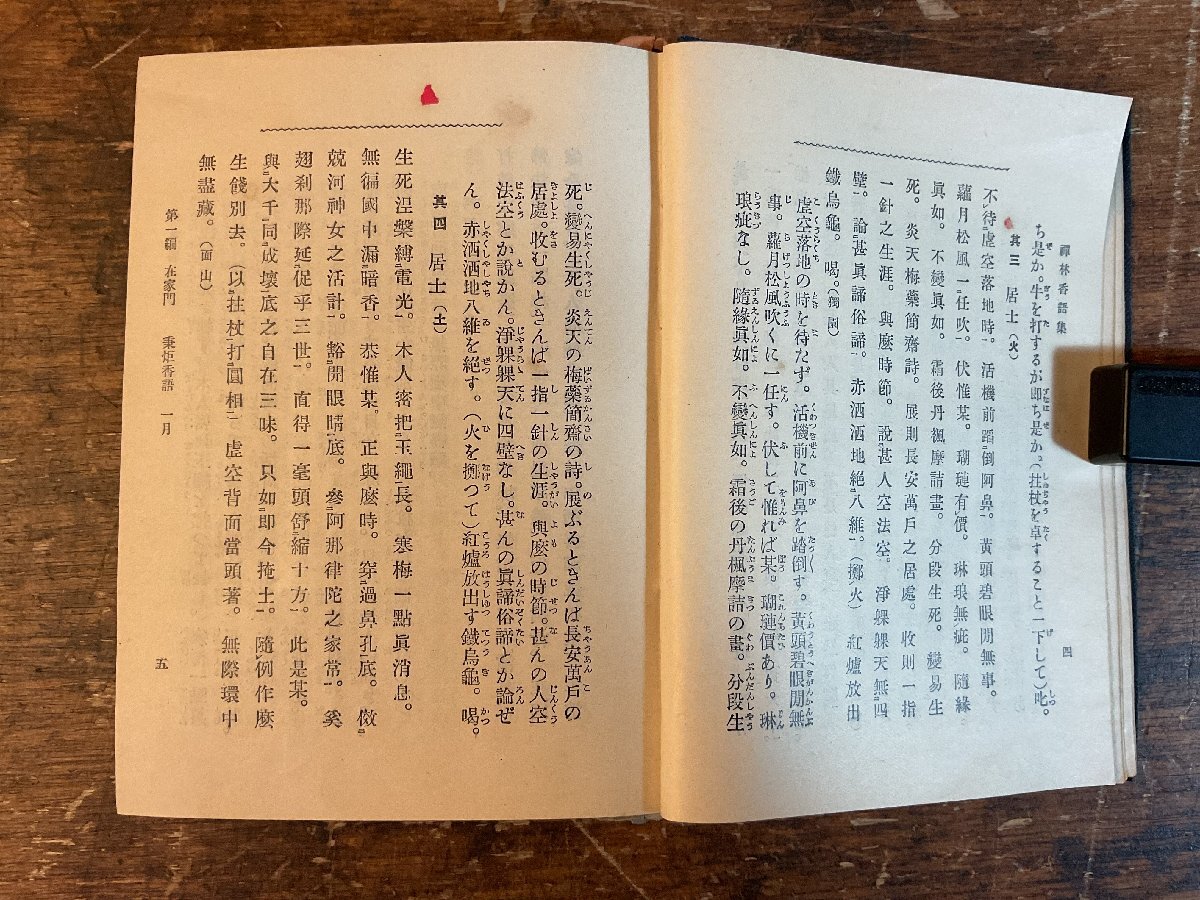 禪林香語集
四
ち是か。牛を打するが即ち是か。(拄杖を卓すること一下して)叱。
其三 居士(火)
不待虛空落地時。活機前蹈倒阿鼻。黃頭碧眼閒無事。
蘿月松風一任吹。伏惟某。瑚璉有價。琳琅無疵。隨緣
眞如。不變眞如。霜後丹楓摩詰畫。分段生死。變易生
死。炎天梅藥簡齋詩。展則長安萬戶之居處。收則一指
一針之生涯。與麼時節。說甚人空法空。淨躶躶天無四
壁。論甚眞諦俗諦。赤洒洒地絕八維。(擲火)紅爐放出
鐵烏龜。喝。(獨園)
虛空落地の時を待たず。活機前に阿鼻を踏倒す。黃頭碧眼閒無
事。蘿月松風吹くに一任す。伏して惟れば某。瑚璉價あり。琳
琅疵なし。隨緣眞如。不變眞如。霜後の丹楓摩詰の畫。分段生
死。變易生死。炎天の梅藥簡齋の詩。展ぶるときんば長安萬戶の
居處。收むるときんば一指一針の生涯。與麼の時節。甚んの人空
法空とか說かん。淨躶躶天に四壁なし。甚んの眞諦俗諦とか論ぜ
ん。赤洒洒地八維を絕す。(火を擲つて)紅爐放出す鐵烏龜。喝。
其四 居士(土)
生死涅槃縛電光。木人密把玉繩長。寒梅一點眞消息。
無徧國中漏暗香。恭惟某。正與麼時。穿過鼻孔底。倣
兢河神女之活計。豁開眼睛底。參阿那律陀之家常。奚
翅刹那際延促乎三世。直得一毫頭舒縮十方。此是某。
與大千同成壞底之自在三昧。只如即今掩土。隨例作麼
生餞別去。(以拄杖打圓相)虛空背面當頭著。無際環中
無盡藏。(面山)
第一編 在家門 秉炬香語 一月
五